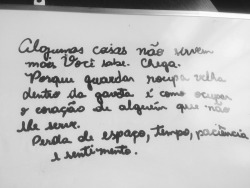 Algumas coisas não servem
mais. Você sabe. Chega.
Porque guardar roupa velha
dentro da gaveta é como ocupar
o coração de alguém que não
lhe serve.
Perda de espaço, tempo, paciência
e sentimento.